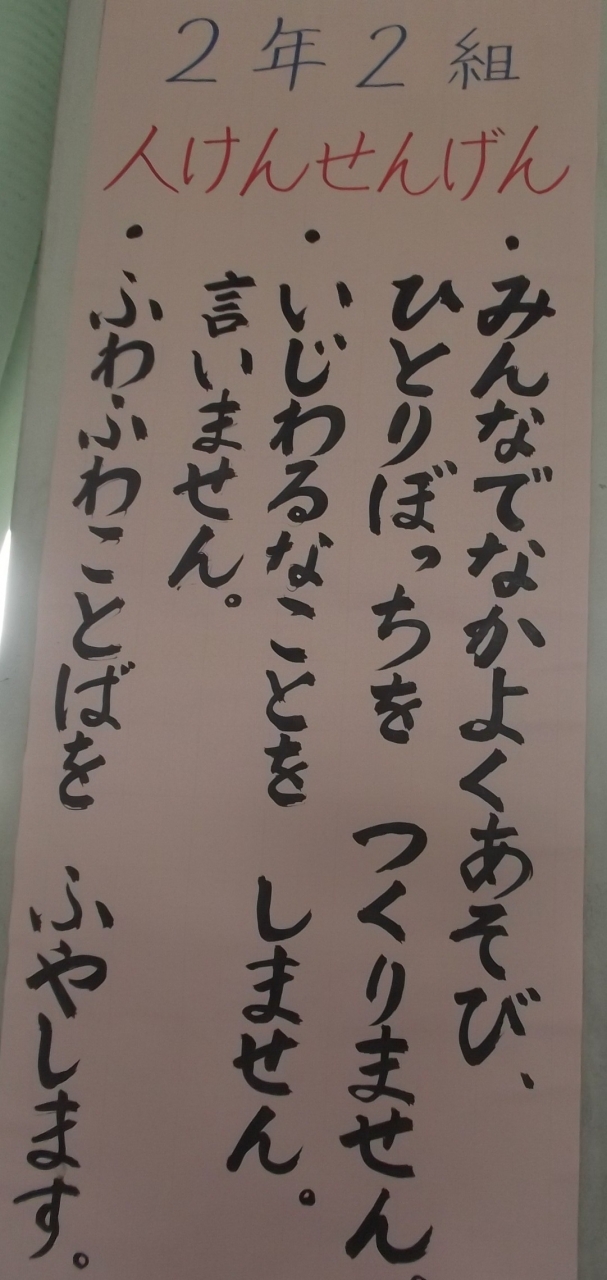 2年2組
人けんせんげん
・みんなでなかよくあそび、
ひとりぼっちを つくりません。
・いじわるなことを しません。
言いません。
・ふわふわことばを ふやします。